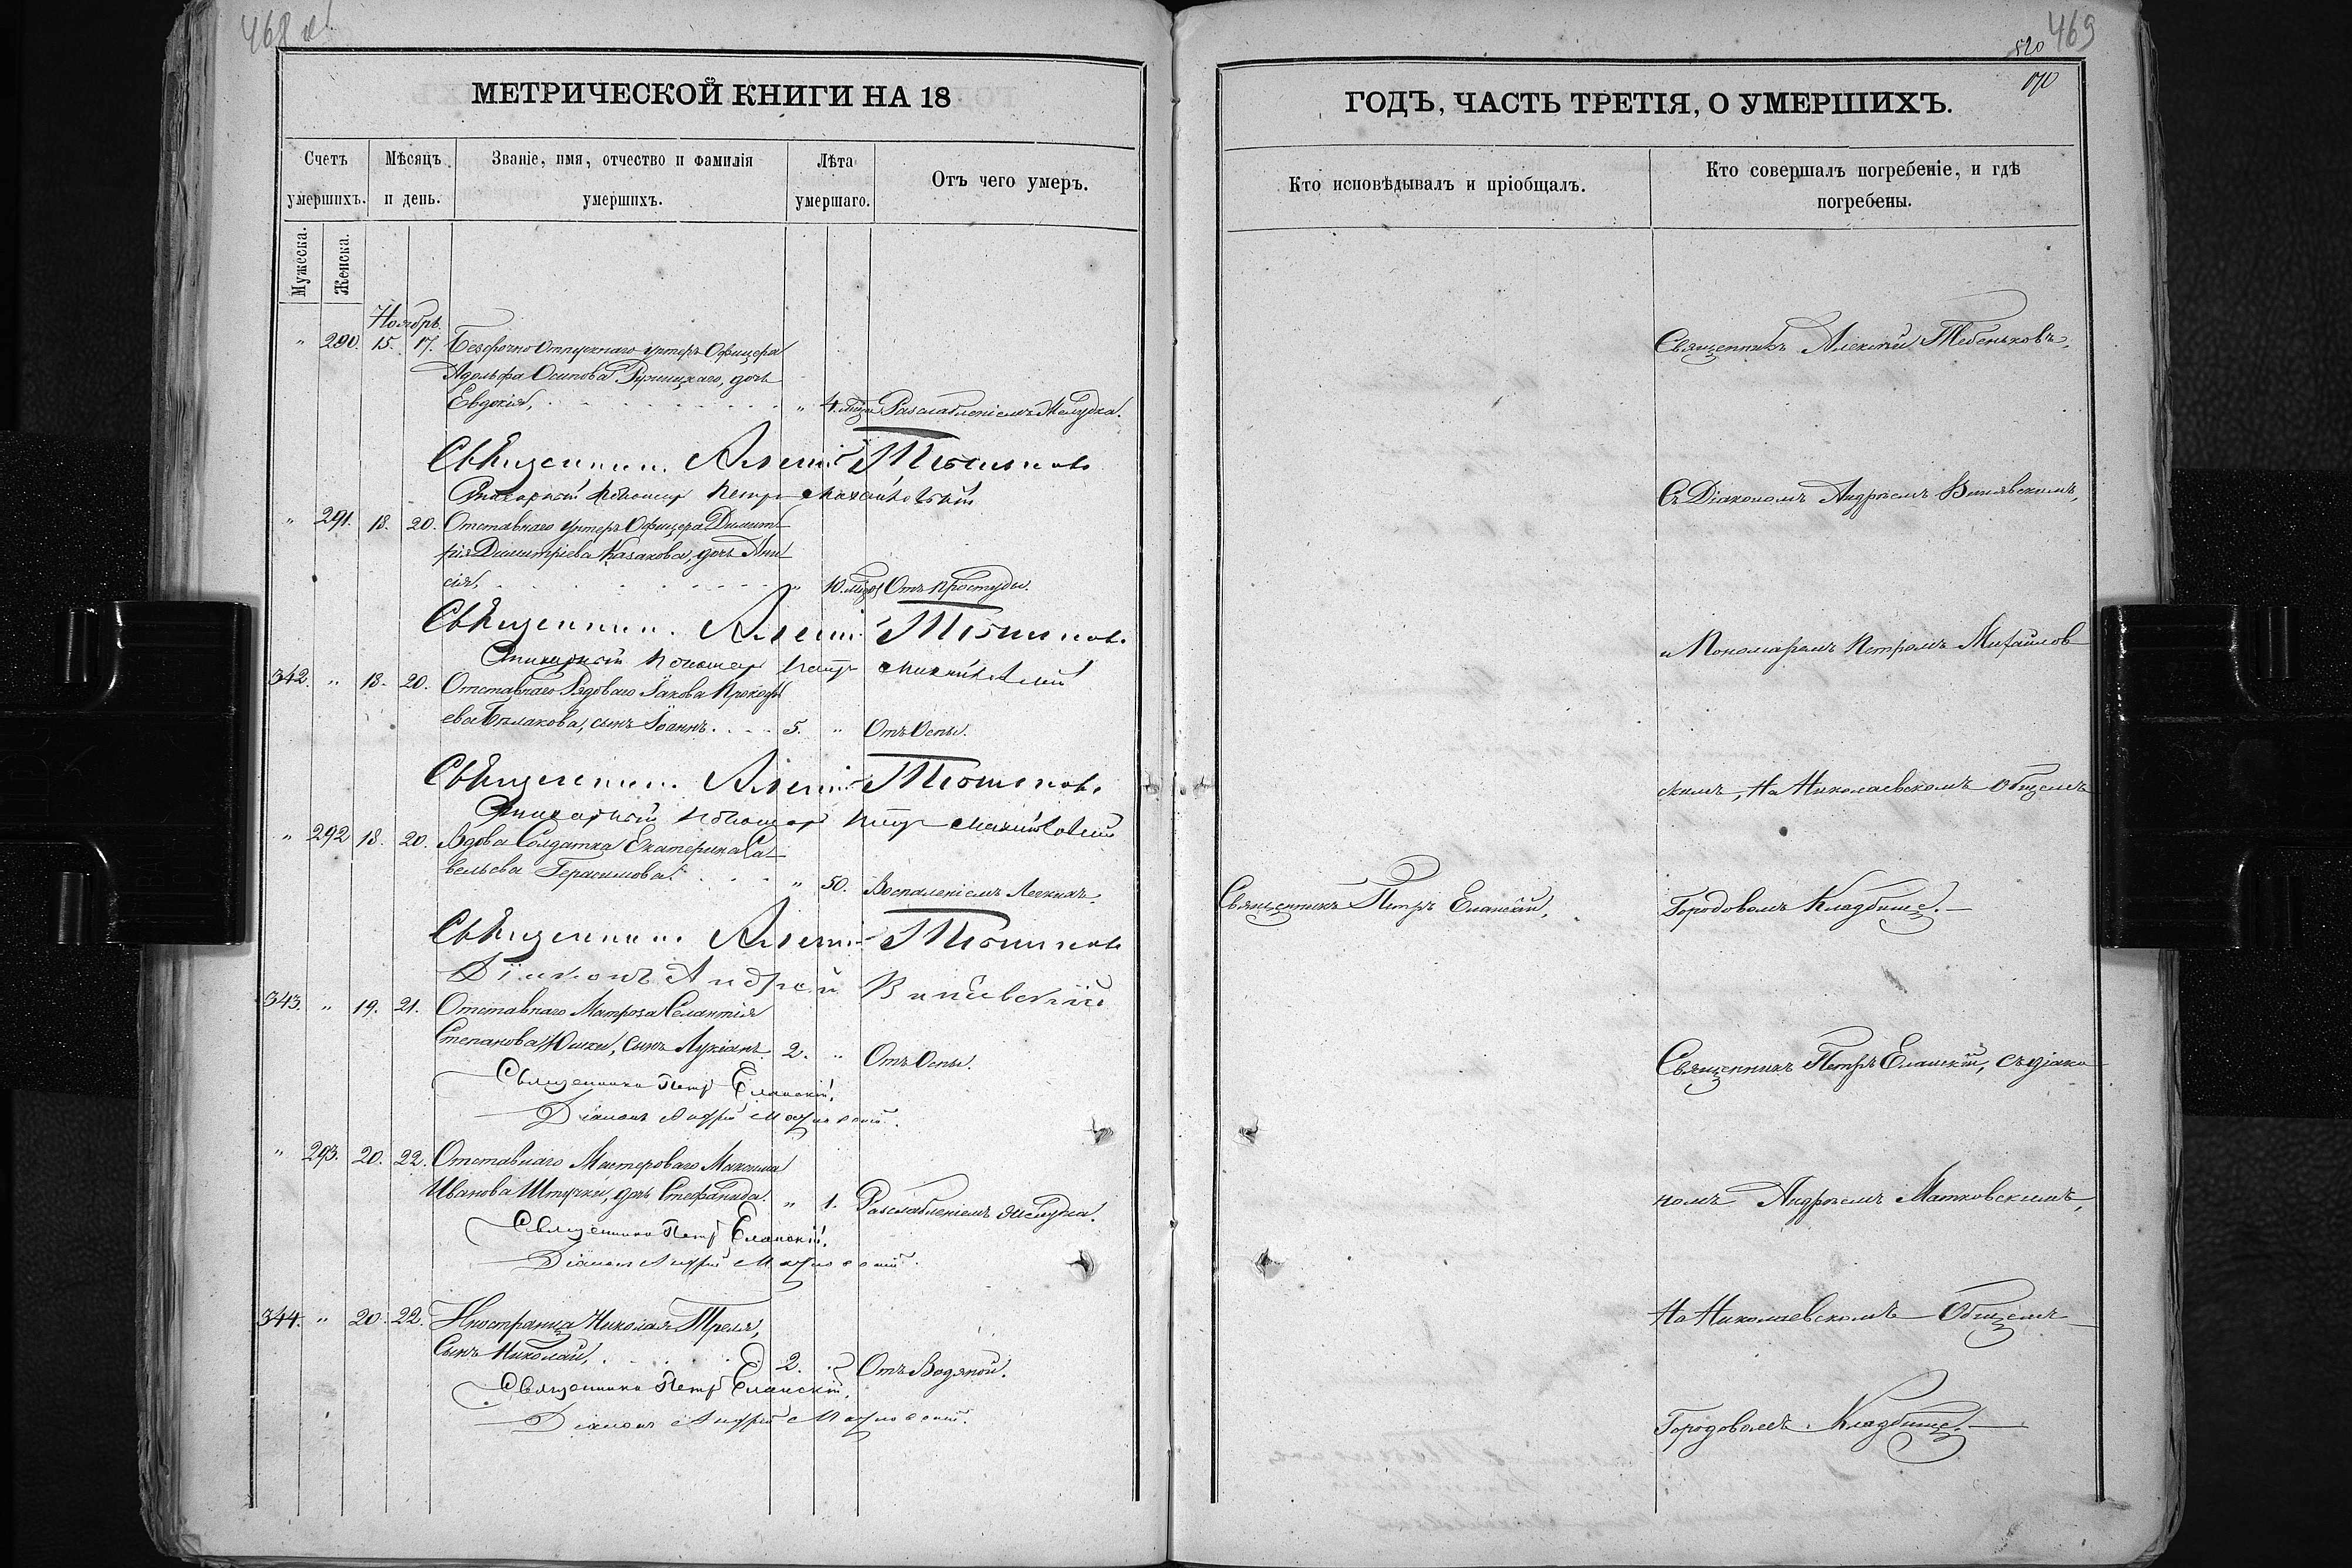 468
МЕТРИЧЕСКОЙ КНИГИ НА 18
Счетъ умершихъ.
Мѣсяцъ и день.
Званіе, имя, отчество и фамилія умершихъ.
Лѣта умершаго.
Отъ чего умеръ.
Мужеска.
Женска.
Ноябрь.
" 290. 15. 17. Безсрочно Отпускнаго унтеръ Офицера
Адольфа Осипова Ружицкаго, дочь
Евдокія, " 4. мѣсяца Разслабленіемъ Желудка.
Священникъ Алексій Тебеньковъ
Пономарь Петръ Михайловскій
" 291. 18. 20. Отставнаго унтеръ Офицера Димит
рія Димитріева Казакова, дочь Ани
сія, " 10. мѣсяц Отъ Простуды.
Священникъ Алексій Тебеньковъ
Пономарь Петръ Михайловскій
342. " 18. 20. Отставнаго Рядоваго Іакова Прокофь
ева Бѣлакова, сынъ Іоаннъ 5. " Отъ Оспы.
Священникъ Алексій Тебеньковъ
Пономарь Петръ Михайловскій
" 292 18. 20. Вдова Солдатка Екатерина Са
вельева Герасимова. " 50. Воспаленіемъ Легкихъ.
Священникъ Алексій Тебеньковъ
Діаконъ Андрей
343. " 19. 21. Отставнаго Матроза
Степанова Юшки, Сынъ Лукіанъ. 2. " Отъ Оспы.
Священникъ Петръ Еланскій.
Діаконъ Андрей Матковскій.
" 293. 20. 22. Отставнаго Мастероваго Максима
Иванова Штучки, дочь Стефанида. " 1. Разслабленіемъ желудка.
Священникъ Петръ Еланскій.
Діаконъ Андрей Матковскій.
344. " 20. 22. Иностранца Николая Треля,
Сынъ Николай, 2. " Отъ Водяной.
Священникъ Петръ Еланскій.
Діаконъ Андрей Матковскій.
469
520
ГОДЪ, ЧАСТЬ ТРЕТІЯ, О УМЕРШИХЪ.
Кто исповѣдывалъ и пріобщалъ.
Кто совершалъ погребеніе, и гдѣ
погребены.
Священникъ Алексѣй Тебеньковъ,
Съ Діакономъ Андреемъ
и Пономаремъ Петромъ Михайлов
скимъ, На Николаевскомъ Общемъ
Священникъ Петръ Еланскій.
Городовомъ Кладбище.
Священникъ Петръ Еланскій, съ діако
номъ Андреемъ Матковскимъ,
На Николаевскомъ Общемъ
Городовомъ Кладбище.